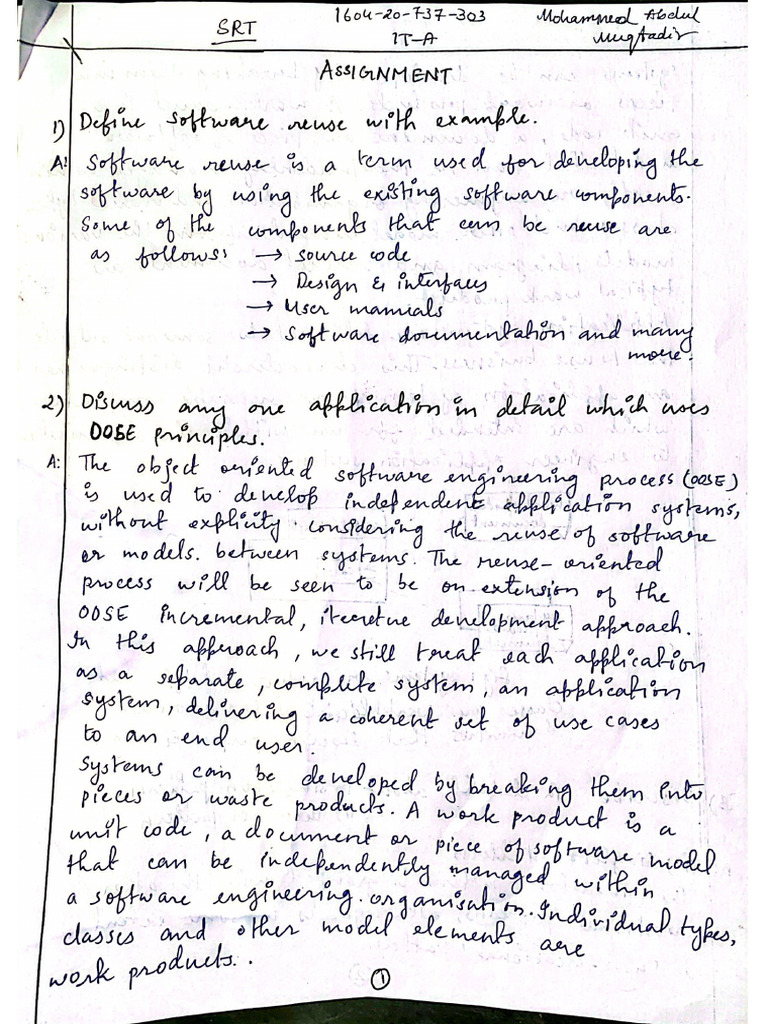 SRT
1604-20-737-303
IT-A
Mohammed Abdul
Muqtadir
ASSIGNMENT
1) Define software reuse with example.
A: Software reuse is a term used for developing the
software by using the existing software components.
Some of the components that can be reuse are
as follows: → source code
→ Design & interfaces
→ User manuals
→ Software documentation and many
more.
2) Discuss any one application in detail which uses
OOSE principles.
A: The object oriented software engineering process (OOSE)
is used to develop independent application systems,
without explicity considering the reuse of software
or models. between systems. The reuse-oriented
process will be seen to be on extension of the
OOSE incremental, iteretue development approach.
In this approach, we still treat each application
as a separate, complete system, an application
system, delivering a coherent set of use cases
to an end user.
Systems can be developed by breaking them into
pieces or waste products. A work product is a
unit code, a document or piece of software model
that can be independently managed within
a software engineering. organisation. Individual types,
classes and other model elements are
work products..
1